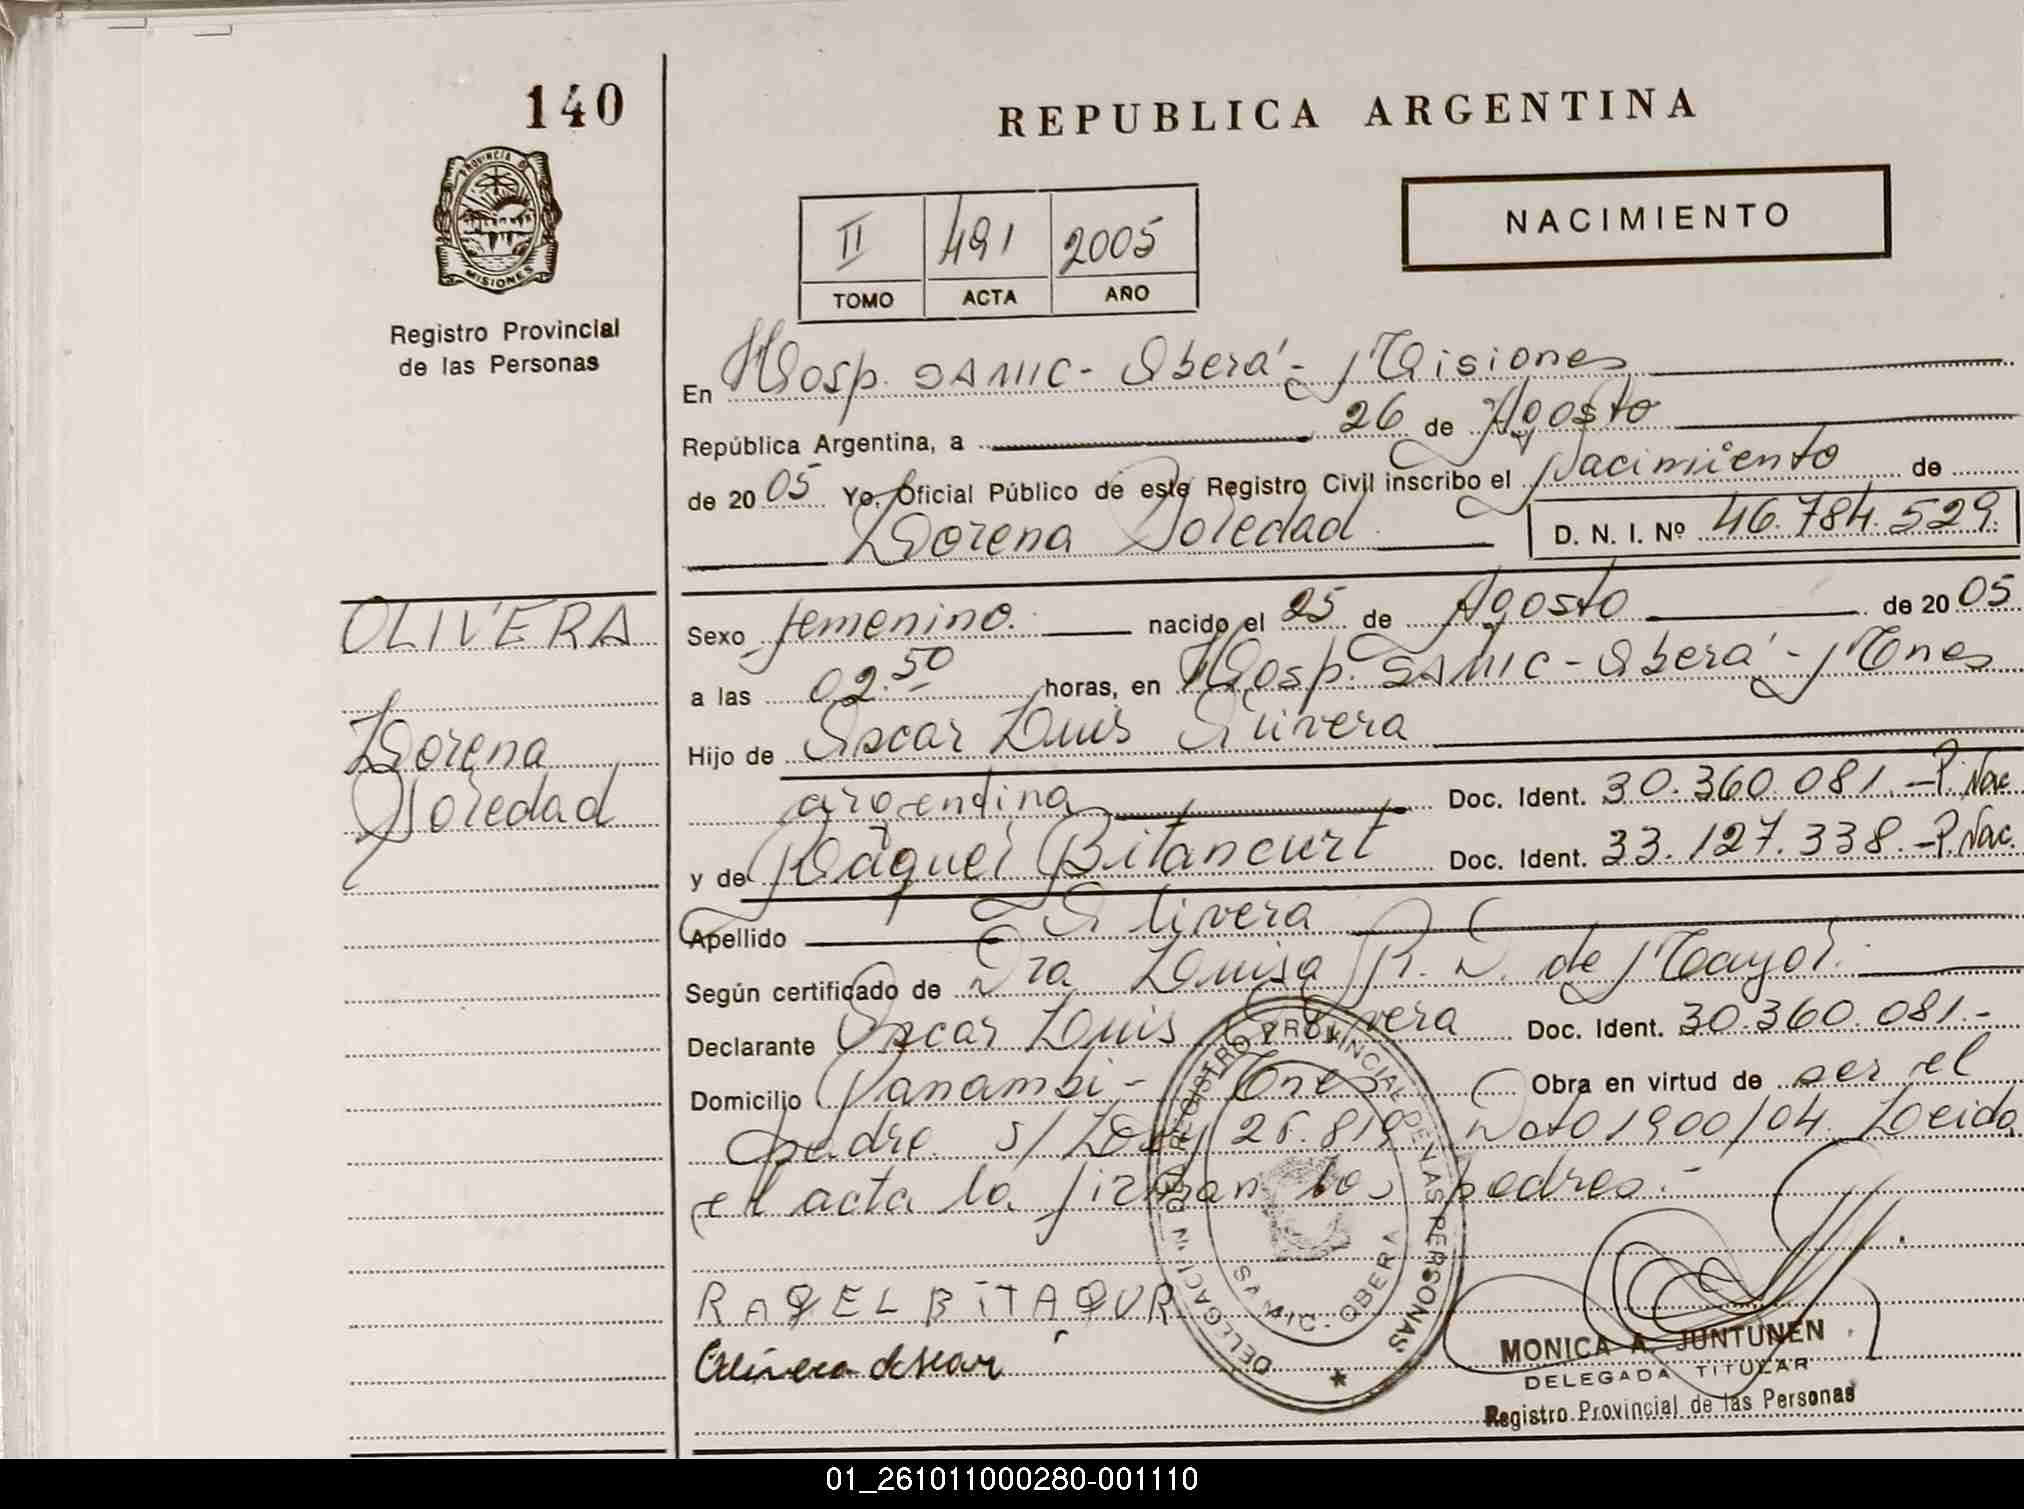 140
PROVINCIA D
MISIONES
Registro Provincial
de las Personas
OLIVERA
Lorena
Soledad
REPUBLICA ARGENTINA
NACIMIENTO
II 491 2005
TOMO ACTA AÑO
En Hosp. SAMIC - Oberá - Misiones
República Argentina, a 26 de Agosto
de 20 05 Yo, Oficial Público de este Registro Civil inscribo el Nacimiento de
Lorena Soledad D. N. I. Nº 46.784.529.
Sexo femenino. nacido el 25 de Agosto de 20 05
a las 02.50 horas, en Hosp. SAMIC - Oberá - Mnes
Hijo de Oscar Luis Olivera
argentina Doc. Ident. 30.360.081.- P. Nac.
y de Raquel Bitancurt Doc. Ident. 33.127.338.- P. Nac.
Apellido Olivera
Según certificado de Dra Luisa R. D. de Mayol.
Declarante Oscar Luis Olivera Doc. Ident. 30.360.081.-
Domicilio Panambi - Mnes Obra en virtud de ser el
padre s/ Ley 26.819 Dcto 1900/04. Leida
el acta la firman los padres.-
RAQEL BITAQUR
Olivera oscar
REGISTRO PROVINCIAL DE LAS PERSONAS
DELEGACION
SAMIC - OBERA
MONICA A. JUNTUNEN
DELEGADA TITULAR
Registro Provincial de las Personas
01_261011000280-001110